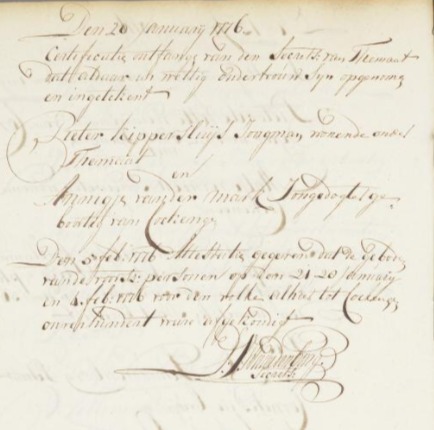 Den 20 January 1776.
Certificatie ontfange van den Secrets. van Themaat
dat aldaar in wettig ondertrouw syn opgenomen
en ingetekent
Pieter Kuijpersluijs Jongman wonende onder
Themaat
en
Annegje van der Mark Jongedogter ge-
boortig van Cockenge
Den 5 feb. 1776 Attestatie gegeven dat de geboden
van de voorsz: persoonen op den 21 28 January
en 4 feb. 1776 voor den volke alhier tot Cockenge
onverhindert waren afgekondigt
Secrets.